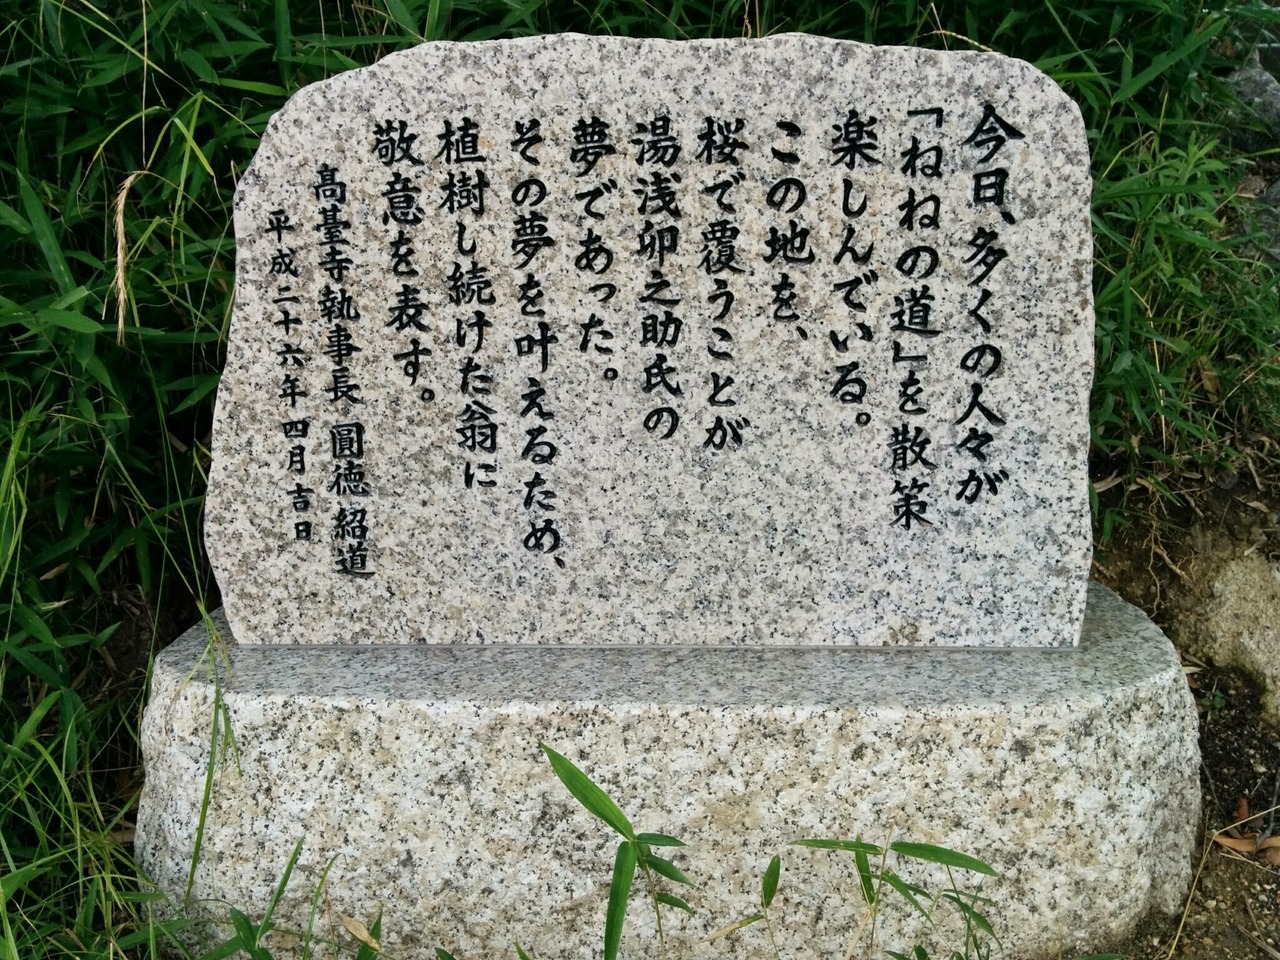 今日、多くの人々が
「ねねの道」を散策
楽しんでいる。
この地を、
桜で覆うことが
湯浅卯之助氏の
夢であった。
その夢を叶えるため、
植樹し続けた翁に
敬意を表す。
高臺寺執事長 圓徳紹道
平成二十六年 四月吉日